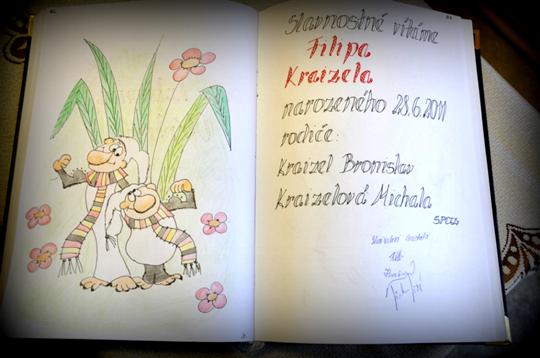 Slavnostně vítáme
Filipa
Kraizela
narozeného 28.6.2011
rodiče:
Kraizel Bronislav
Kraizelová Michala